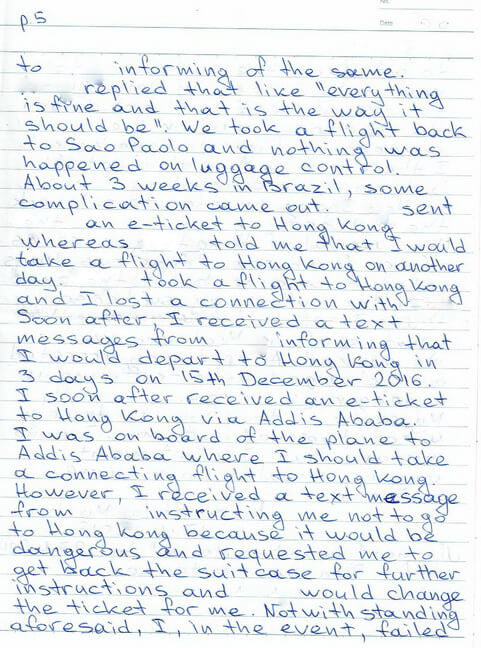 No.
Date
p.5
to informing of the same.
replied that like "everything
is fine and that is the way it
should be". We took a flight back
to Sao Paolo and nothing was
happened on luggage control.
About 3 weeks in Brazil, some
complication came out. sent
an e-ticket to Hong Kong
whereas told me that I would
take a flight to Hong Kong on another
day. took a flight to Hong Kong
and I lost a connection with
Soon after, I received a text
messages from informing that
I would depart to Hong Kong in
3 days on 15th December 2016.
I soon after received an e-ticket
to Hong Kong via Addis Ababa.
I was on board of the plane to
Addis Ababa where I should take
a connecting flight to Hong Kong.
However, I received a text message
from instructing me not to go
to Hong Kong because it would be
dangerous and requested me to
get back the suitcase for further
instructions and would change
the ticket for me. Notwithstanding
aforesaid, I, in the event, failed